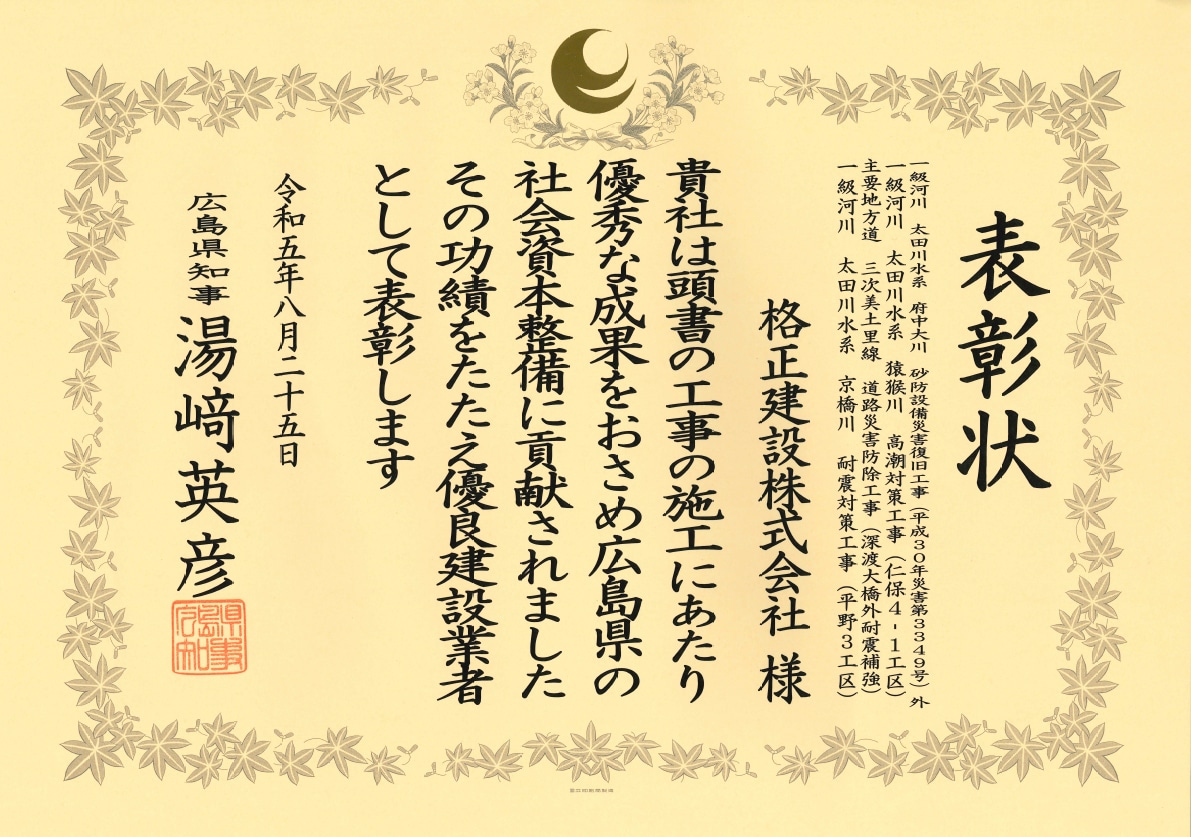 表彰状
一級河川　太田川水系　府中大川　砂防設備災害復旧工事（平成３０年災害第３３４９号）外
一級河川　太田川水系　猿猴川　高潮対策工事（仁保４-１工区）
主要地方道　三次美土里線　道路災害防除工事（深渡大橋外耐震補強）
一級河川　太田川水系　京橋川　耐震対策工事（平野３工区）
格正建設株式会社　様
貴社は頭書の工事の施工にあたり
優秀な成果をおさめ広島県の
社会資本整備に貢献されました
その功績をたたえ優良建設業者
として表彰します
令和五年八月二十五日
広島県知事　湯﨑英彦